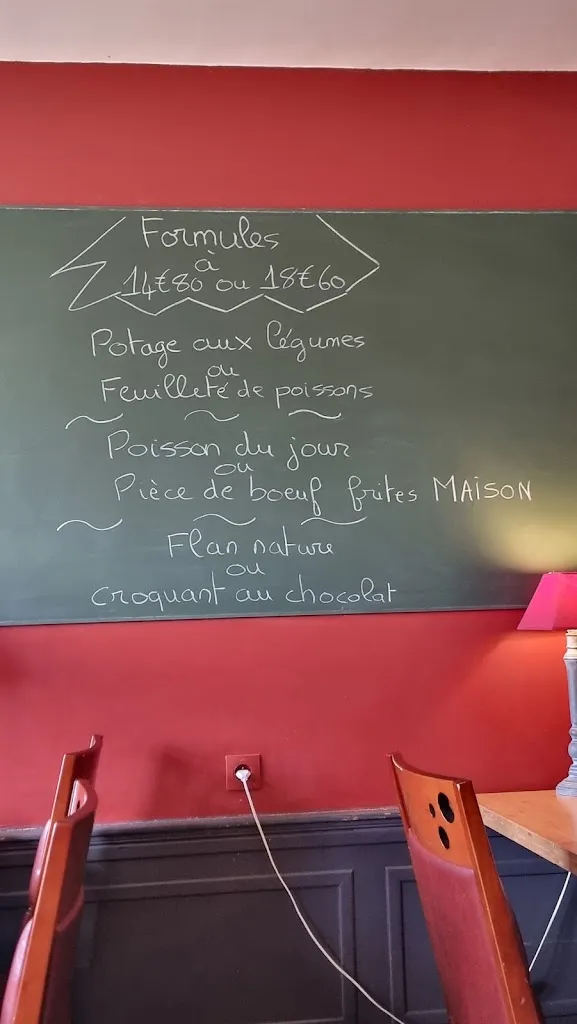 Formules
à
14€80 ou 18€60
Potage aux légumes
ou
Feuilleté de poissons
Poisson du jour
ou
Pièce de boeuf frites MAISON
Flan nature
ou
croquant au chocolat